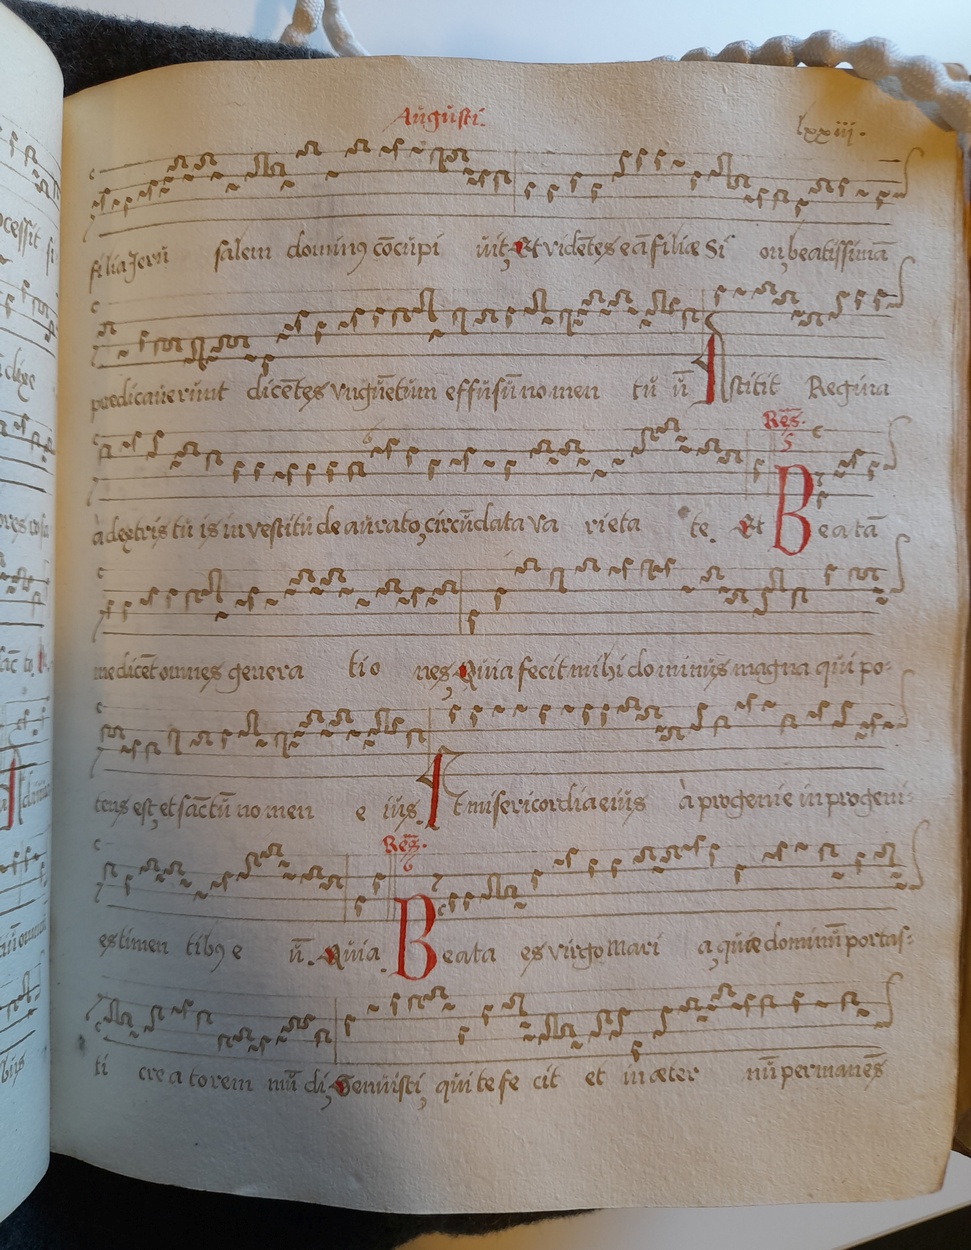 Augusti.
lxxiii.
filia Jeru salem dominꝯ cōcupi uit, Et vidētes eā filiæ Si on, beatissimā
prædicauerunt dicētes vnguētum effusū nomen tu ū Astitit Regina
Res. 5
à dextris tu is in vestitu de aurato, circūdata va rieta te. Et Beatā
me dicēt omnes genera tio nes, Quia fecit mihi dominus magna qui po-
tens est, et sāctū nomen e ius. Et misericordia eius à progenie in progeni-
Res. 6
es timen tibꝯ e ū. Quia Beata es virgo Mari a, quæ dominū portas-
ti creatorem mū di, Genuisti, qui te fe cit et in æter nū permanēs